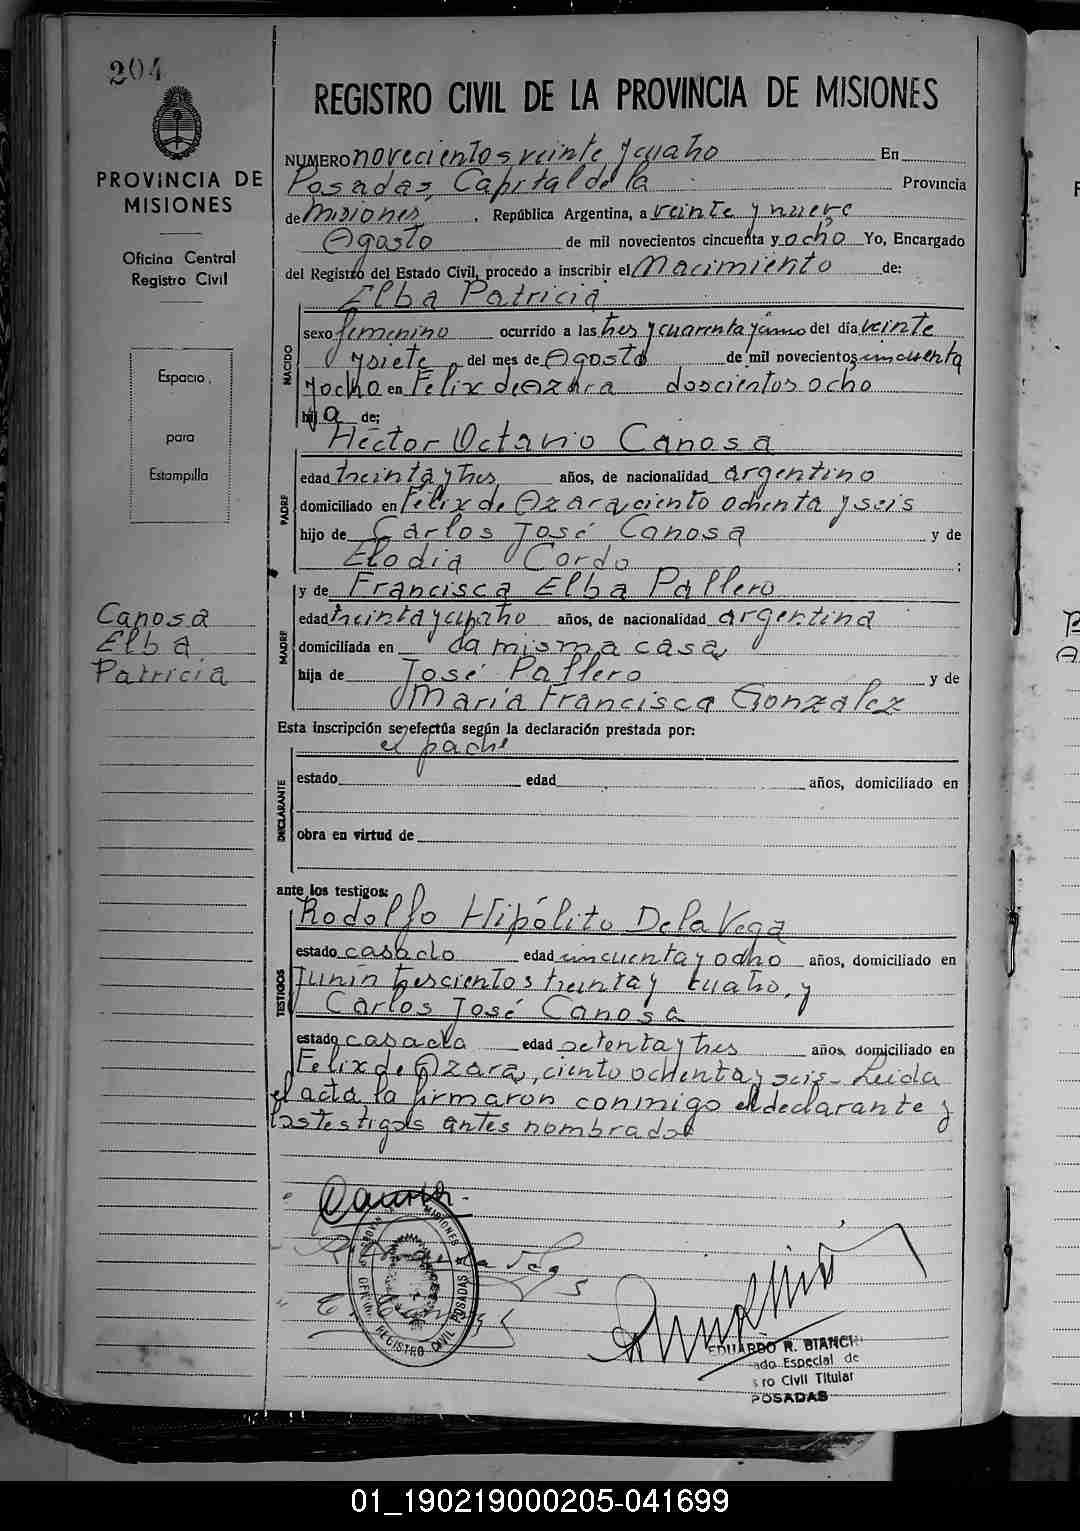 204
PROVINCIA DE
MISIONES
Oficina Central
Registro Civil
Espacio
para
Estampilla
Canosa
Elba
Patricia
REGISTRO CIVIL DE LA PROVINCIA DE MISIONES
NUMERO novecientos veinte y cuatro En
Posadas, Capital de la Provincia
de Misiones, República Argentina, a veinte y nueve
Agosto de mil novecientos cincuenta y ocho Yo, Encargado
del Registro del Estado Civil, procedo a inscribir el Nacimiento de:
Elba Patricia
NACIDO
sexo femenino ocurrido a las tres y cuarenta y cinco del día veinte
y siete del mes de Agosto de mil novecientos cincuenta
y ocho en Felix de Azara doscientos ocho
hija de:
Héctor Octavio Canosa
PADRE
edad treinta y tres años, de nacionalidad argentino
domiciliado en Félix de Azara ciento ochenta y seis
hijo de Carlos José Canosa y de
Elodia Cordo :
y de Francisca Elba Pallero
MADRE
edad treinta y cuatro años, de nacionalidad argentina
domiciliada en la misma casa
hija de José Pallero y de
María Francisca Gonzalez
Esta inscripción se efectúa según la declaración prestada por:
el padre
DECLARANTE
estado edad años, domiciliado en
obra en virtud de
ante los testigos:
Rodolfo Hipólito De la Vega
TESTIGOS
estado casado edad cincuenta y ocho años, domiciliado en
Junín trescientos treinta y cuatro, y
Carlos José Canosa
estado casado edad setenta y tres años, domiciliado en
Felix de Azara, ciento ochenta y seis - Leida
el acta la firmaron conmigo el declarante y
los testigos antes nombrados
MISIONES
REGISTRO CIVIL POSADAS
EDUARDO R. BIANCHI
ado Especial de
ro Civil Titular
POSADAS
01_190219000205-041699